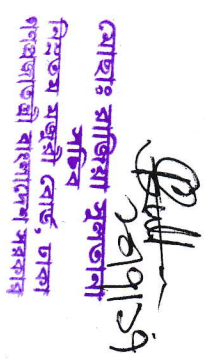 মোছাঃ রাজিয়া সুলতানা
সচিব
নিম্নতম মজুরী বোর্ড, ঢাকা
গণপ্রজাতন্ত্রী বাংলাদেশ সরকার